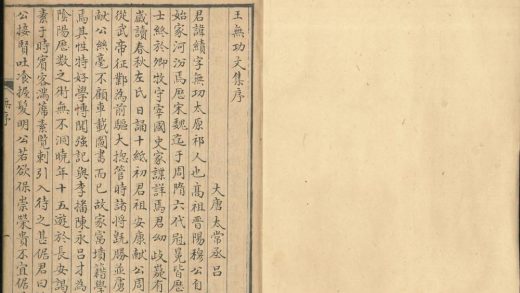 王無功文集序
大唐太常丞呂
君諱績字無功太原祁人也高祖晉陽穆公自
始家河汾焉歷宋魏迄于周隋六代冠冕皆歷
士終於卿牧守宰國史家諜詳焉君幼歧嶷有
歲讀春秋左氏日誦十紙初君祖安康獻公周
從武帝征鄴為前驅大揔管時諸將既勝並虜
獻公絲毫不顧車載圖書而已故家富墳籍學
焉其性特好學博聞強記與李播陳永呂才為
陰陽歷數之術無不洞曉年十五遊於長安謁
素于時賓客滿席素覽刺引入待之甚倨君曰
公接賢吐飡握髮明公若欲保崇榮貴不宜倨
序
一